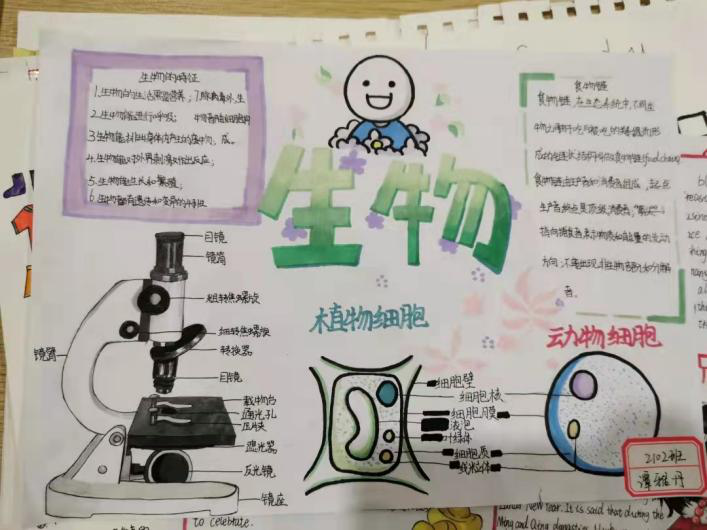 生物的特征
1.生物的生活需要营养；7.除病毒外,生
2.生物能进行呼吸；
3.生物能排出身体内产生的废物，成。
4.生物能对外界刺激作出反应；
5.生物能生长和繁殖；
6.生物都有遗传和变异的特性
生物
食物链
食物链：在生态系统中，不同生
物之间由于吃与被吃的关系而形
成的链状结构叫做食物链(food chain)
食物链由生产者和消费者组成，起点
生产者,终点是顶级消费者，"箭头"
指向捕食者,表示物质和能量的流动
方向；不能出现非生物部分和分解
者。
目镜
镜筒
粗转焦螺旋
细转焦螺旋
转换器
目镜
镜臂
载物台
通光孔
压片夹
遮光器
反光镜
镜座
植物细胞
动物细胞
细胞壁
细胞核
细胞膜
液泡
叶绿体
细胞质
线粒体
2102班
to celebrate.
Lunar New Year. It is said that during the
Ming and Qing dynasties